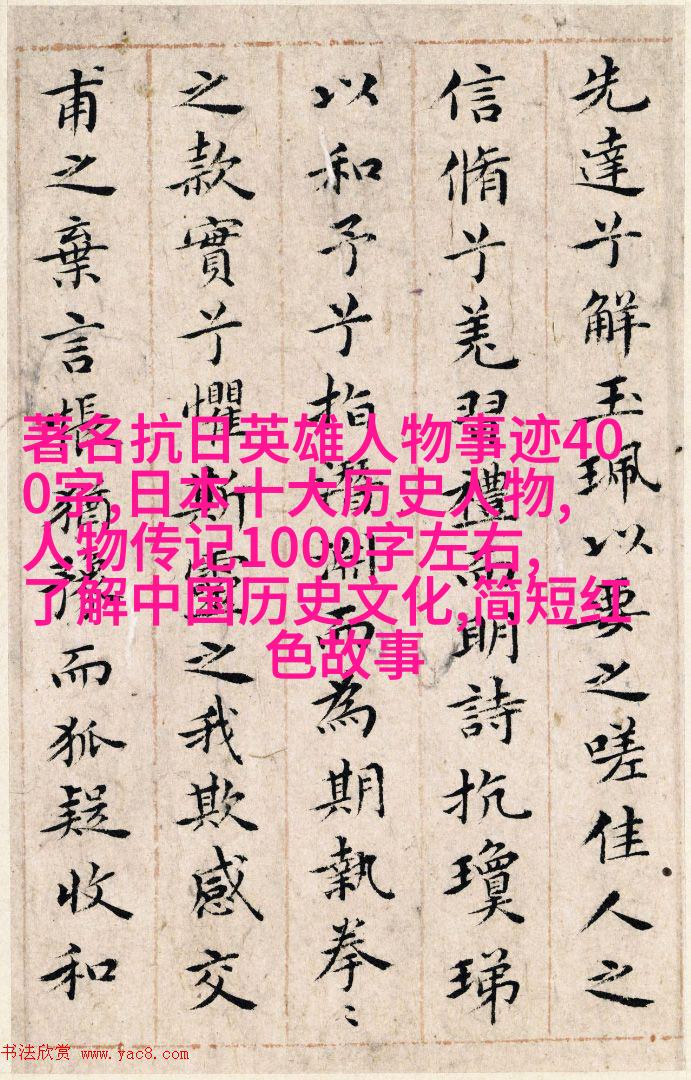 先達兮解玉珮以要之嗟佳人之
信脩兮羌習禮而明詩抗瓊珶
以和予兮指潛淵而為期執拳〻
之款實兮懼斯靈之我欺感交
甫之棄言悵猶豫而狐疑收和
著名抗日英雄人物事迹40
0字,日本十大历史人物,
人物传记1000字左右,
了解中国历史文化,简短红
色故事
书法欣赏 www.yac8.com